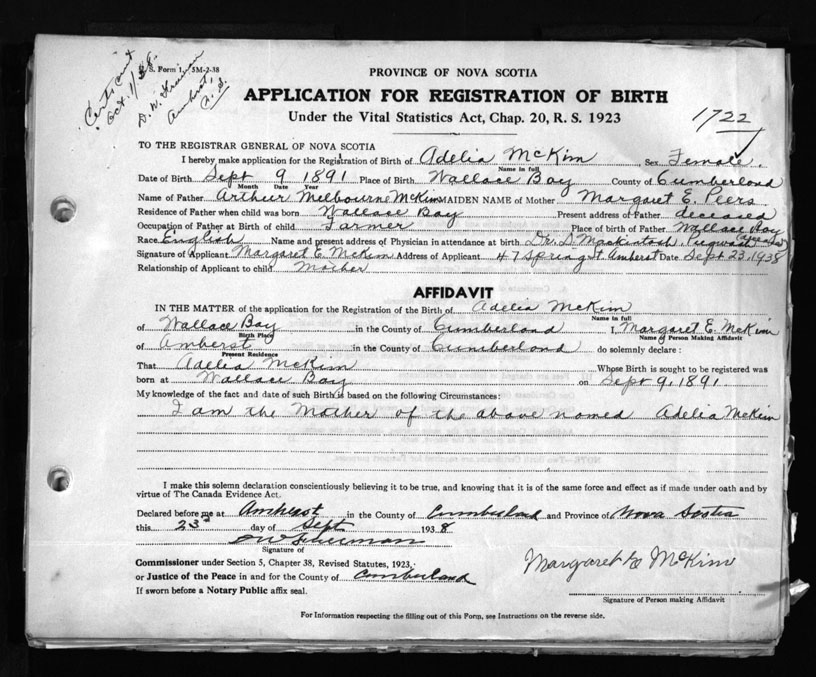 Cert sent
Oct. 1/38
D. W.
Amherst,
N. S.
S. Form 1, 5M-2-38
PROVINCE OF NOVA SCOTIA
APPLICATION FOR REGISTRATION OF BIRTH
Under the Vital Statistics Act, Chap. 20, R. S. 1923
1722
TO THE REGISTRAR GENERAL OF NOVA SCOTIA
I hereby make application for the Registration of Birth of Adelia McKim Sex Female.
Name in full
Date of Birth Sept 9 1891 Place of Birth Wallace Bay County of Cumberland
Month Date Year
Name of Father Arthur Melbourne McKim MAIDEN NAME of Mother Margaret E. Peers
Residence of Father when child was born Wallace Bay Present address of Father deceased
Occupation of Father at Birth of child Farmer Place of Birth of Father Wallace Bay
Race English Name and present address of Physician in attendance at birth Dr. D. Mackintosh, Pugwash
Signature of Applicant Margaret E. McKim Address of Applicant 47 Spring St. Amherst Date Sept 23, 1938
Relationship of Applicant to child mother
AFFIDAVIT
IN THE MATTER of the application for the Registration of the Birth of Adelia McKim
Name in full
of Wallace Bay in the County of Cumberland I, Margaret E. McKim
Birth Place Name of Person Making Affidavit
of Amherst in the County of Cumberland do solemnly declare :
Present Residence
That Adelia McKim Whose Birth is sought to be registered was
born at Wallace Bay on Sept 9, 1891
My knowledge of the fact and date of such Birth is based on the following Circumstances:
I am the Mother of the above named Adelia McKim
I make this solemn declaration conscientiously believing it to be true, and knowing that it is of the same force and effect as if made under oath and by
virtue of The Canada Evidence Act.
Declared before me at Amherst in the County of Cumberland and Province of Nova Scotia
this 23rd day of Sept 1938
Signature of
Commissioner under Section 5, Chapter 38, Revised Statutes, 1923,
or Justice of the Peace in and for the County of Cumberland
If sworn before a Notary Public affix seal.
Margaret E McKim
Signature of Person making Affidavit
For Information respecting the filling out of this Form, see Instructions on the reverse side.